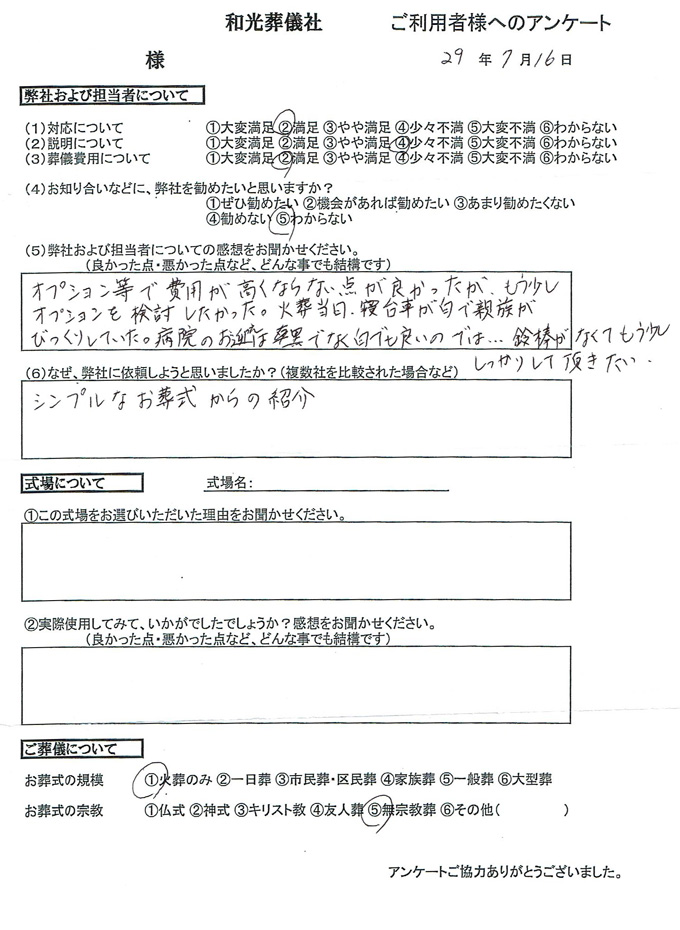 和光葬儀社 ご利用者様へのアンケート
様 29 年 7 月 16 日
弊社および担当者について
(1)対応について ①大変満足 ②満足 ③やや満足 ④少々不満 ⑤大変不満 ⑥わからない
(2)説明について ①大変満足 ②満足 ③やや満足 ④少々不満 ⑤大変不満 ⑥わからない
(3)葬儀費用について ①大変満足 ②満足 ③やや満足 ④少々不満 ⑤大変不満 ⑥わからない
(4)お知り合いなどに、弊社を勧めたいと思いますか?
①ぜひ勧めたい ②機会があれば勧めたい ③あまり勧めたくない
④勧めない ⑤わからない
(5)弊社および担当者についての感想をお聞かせください。
(良かった点・悪かった点など、どんな事でも結構です)
オプション等で費用が高くならない点が良かったが、もう少し
オプションを検討したかった。火葬当日、寝台車が白で親族が
びっくりしていた。病院のお迎は黒でなく白でも良いのでは… 鈴棒がなくてもう少
しっかりして頂きたい.
(6)なぜ、弊社に依頼しようと思いましたか?(複数社を比較された場合など)
シンプルなお葬式からの紹介
式場について 式場名:
①この式場をお選びいただいた理由をお聞かせください。
②実際使用してみて、いかがでしたでしょうか?感想をお聞かせください。
(良かった点・悪かった点など、どんな事でも結構です)
ご葬儀について
お葬式の規模 ①火葬のみ ②一日葬 ③市民葬・区民葬 ④家族葬 ⑤一般葬 ⑥大型葬
お葬式の宗教 ①仏式 ②神式 ③キリスト教 ④友人葬 ⑤無宗教葬 ⑥その他( )
アンケートご協力ありがとうございました。